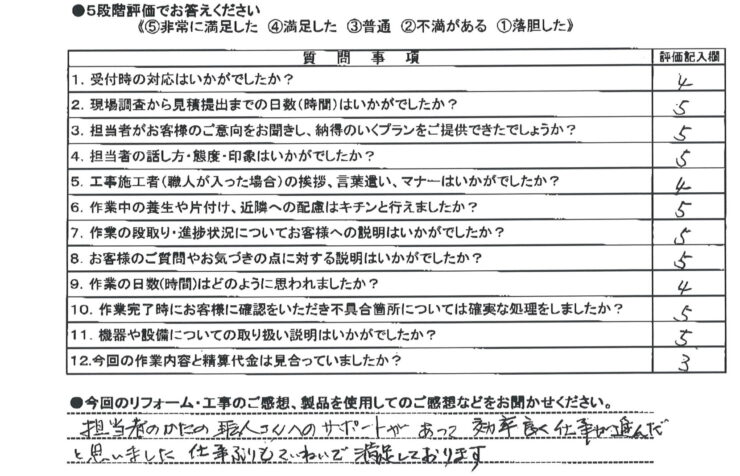 ●5段階評価でお答えください
《⑤非常に満足した ④満足した ③普通 ②不満がある ①落胆した》
質問事項 評価記入欄
1. 受付時の対応はいかがでしたか? 4
2. 現場調査から見積提出までの日数(時間)はいかがでしたか? 5
3. 担当者がお客様のご意向をお聞きし、納得のいくプランをご提供できたでしょうか? 5
4. 担当者の話し方・態度・印象はいかがでしたか? 5
5. 工事施工者(職人が入った場合)の挨拶、言葉遣い、マナーはいかがでしたか? 4
6. 作業中の養生や片付け、近隣への配慮はキチンと行えましたか? 5
7. 作業の段取り・進捗状況についてお客様への説明はいかがでしたか? 5
8. お客様のご質問やお気づきの点に対する説明はいかがでしたか? 5
9. 作業の日数(時間)はどのように思われましたか? 4
10. 作業完了時にお客様に確認をいただき不具合箇所については確実な処理をしましたか? 5
11. 機器や設備についての取り扱い説明はいかがでしたか? 5
12.今回の作業内容と精算代金は見合っていましたか? 3
●今回のリフォーム・工事のご感想、製品を使用してのご感想などをお聞かせください。
担当者のかたの職人さんへのサポートがあって 効率良く仕事が進んだ
と思いました 仕事ぶりもていねいで 満足しております